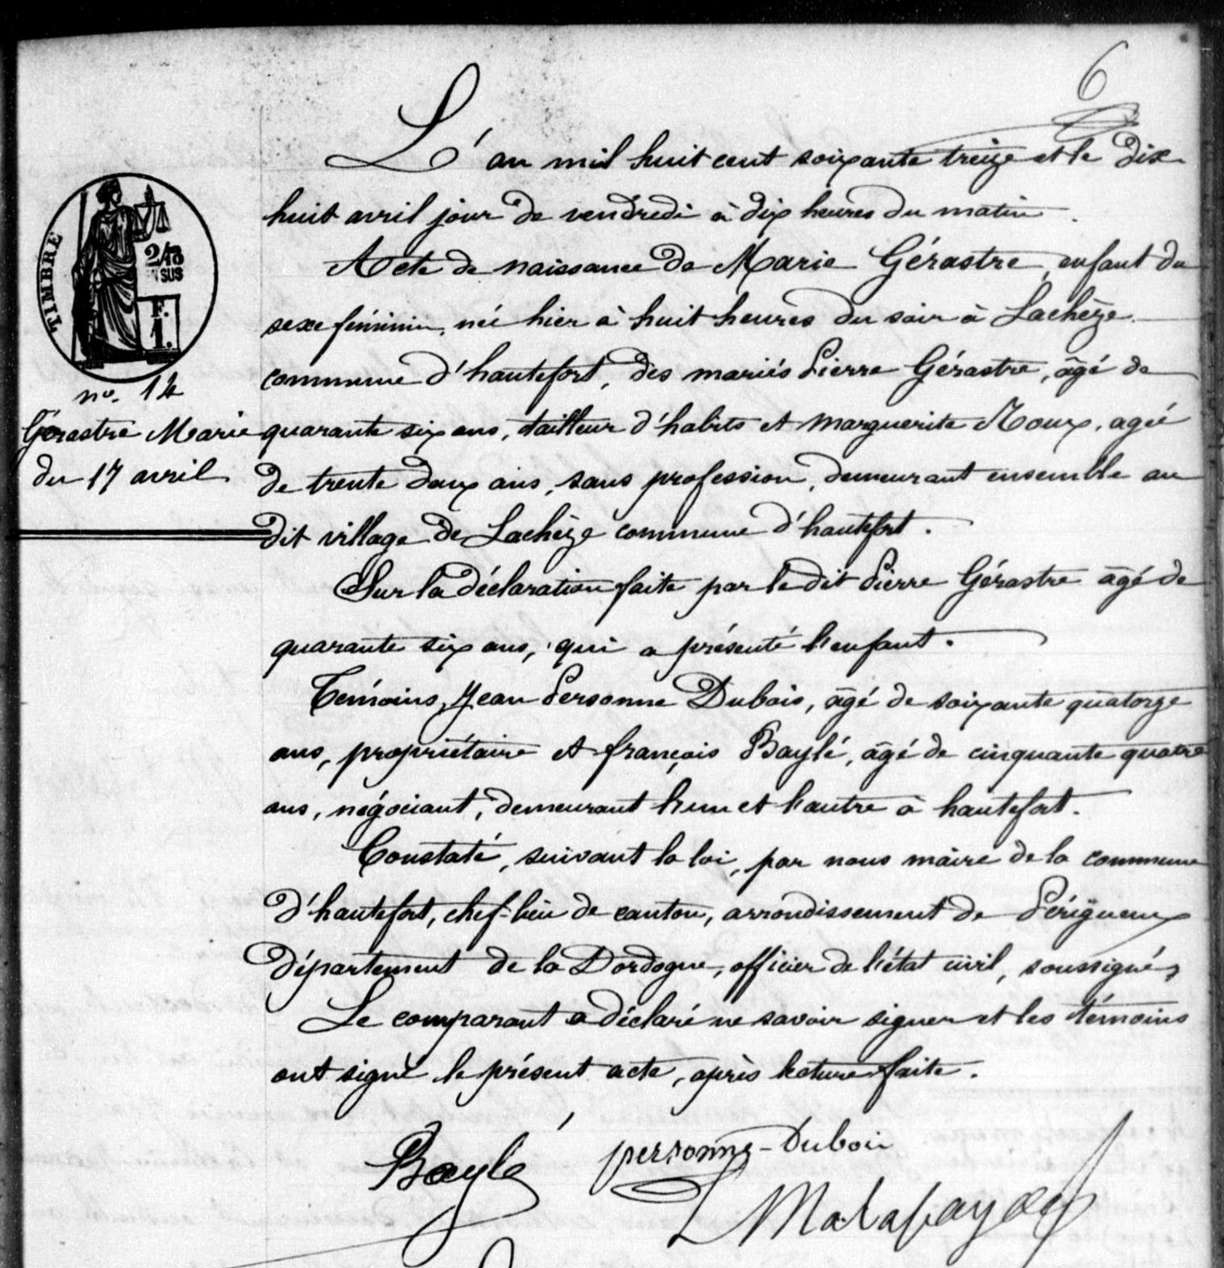 6
L'an mil huit cent soixante treize et le dix
huit avril jour de vendredi à dix heures du matin.
Acte de naissance de Marie Gérastre, enfant du
sexe féminin, née hier à huit heures du soir à Lachèze
commune d'hautefort, des mariés Pierre Gérastre, âgé de
quarante six ans, tailleur d'habits et marguerite Roux, agée
de trente deux ans, sans profession, demeurant ensemble au
dit village de Lachèze commune d'hautefort.
Sur la déclaration faite par le dit Pierre Gérastre âgé de
quarante six ans, qui a présenté l'enfant.
Témoins, Jean Personne Dubois, âgé de soixante quatorze
ans, propriétaire et françois Baylé, âgé de cinquante quatre
ans, négociant, demeurant l'un et l'autre à hautefort.
Constaté, suivant la loi, par nous maire de la commune
d'hautefort, chef-lieu de canton, arrondissement de Périgueux
département de la Dordogne, officier de l'état civil, soussigné,
Le comparant a déclaré ne savoir signer et les témoins
ont signé le présent acte, après lecture faite.
Baylé personne-Duboi
TIMBRE
2/10
EN SUS
F.
1.
no. 12
Gérastre Marie
du 17 avril